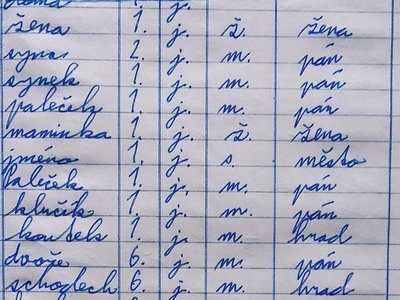 1. j.
žena 1. j. ž. žena
syna 2. j. m. pán
synek 1. j. m. pán
paleček 1. j. m. pán
maminka 1. j. ž. žena
jméno 1. j. s. město
Paleček 1. j. m. pán
klučík 1. j. m. pán
koutek 1. j. m. hrad
dvoře 6. j. m. pán
schodech 6. j. m. hrad